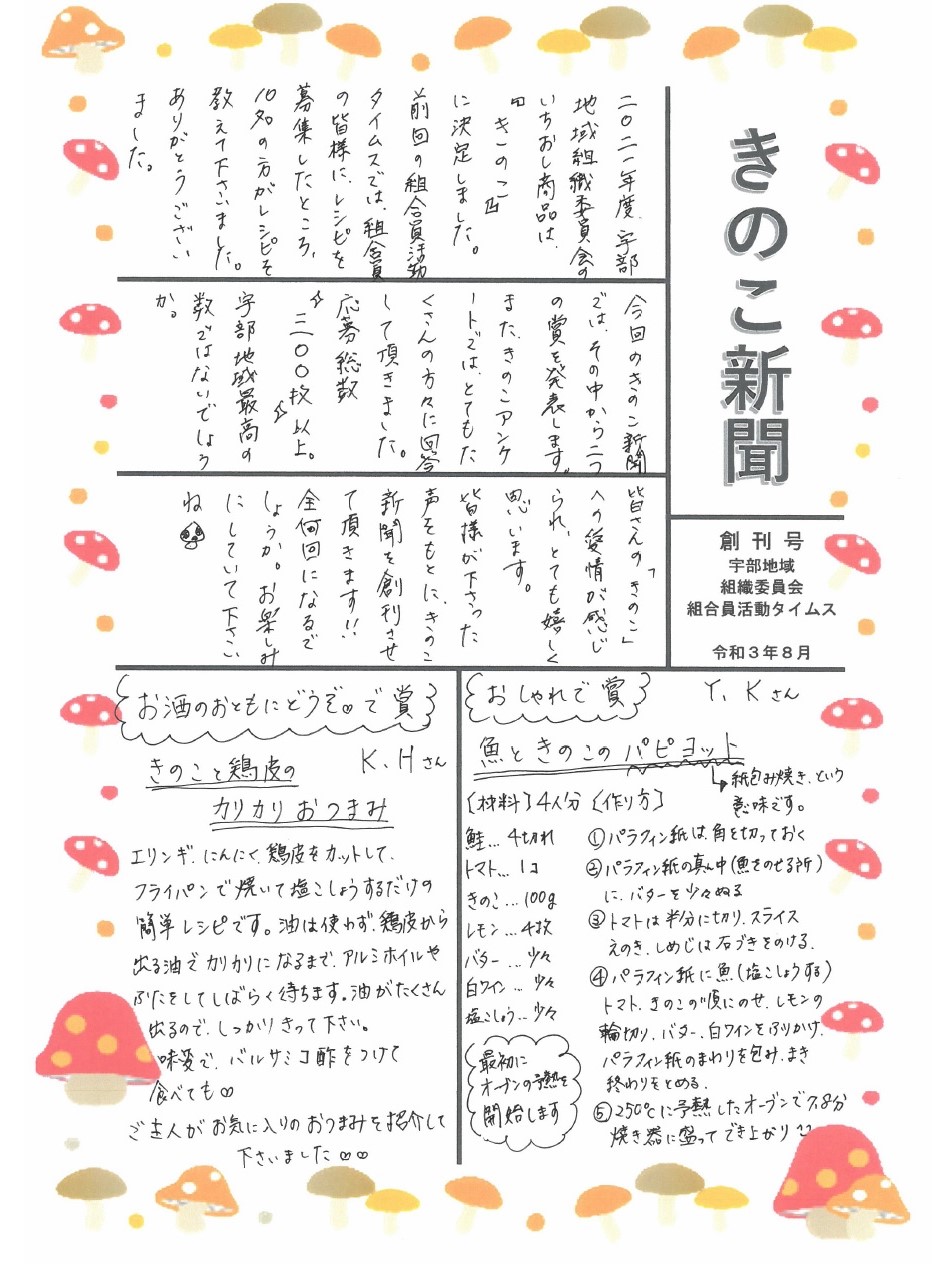 きのこ新聞
創刊号
宇部地域
組織委員会
組合員活動タイムス
令和3年8月
二〇二一年度、宇部
地域組織委員会の
いちおし商品は、
『きのこ』
に決定しました。
前回の組合員活動
タイムスでは、組合員
の皆様に、レシピを
募集したところ、
10名の方がレシピを
教えて下さいました。
ありがとうござい
ました。
今回のきのこ新聞
では、その中から二つ
の賞を発表します。
また、きのこアンケ
ートでは、とてもた
くさんの方々に回答
して頂きました。
応募総数
二〇〇枚以上。
宇部地域最高の
数ではないでしょう
か。
皆さんの「きのこ」
への愛情が感じ
られ、とても嬉しく
思います。
皆様が下さった
声をもとに、きのこ
新聞を創刊させ
て頂きます!!
全何回になるで
しょうか。お楽しみ
にしていて下さい
ね
おしゃれで賞
Y.Kさん
魚ときのこのパピヨット
↳紙包み焼き、という
意味です。
[材料]4人分
鮭…4切れ
トマト…1コ
きのこ…100g
レモン…4枚
バター…少々
白ワイン…少々
塩こしょう…少々
最初に
オーブンの予熱を
開始します
〈作り方〉
①パラフィン紙は、角を切っておく
②パラフィン紙の真ん中(魚をのせる所)
に、バターを少々ぬる
③トマトは半分に切り、スライス
えのき、しめじは石づきをのける。
④パラフィン紙に魚(塩こしょうする)
トマト、きのこの順にのせ、レモンの
輪切り、バター、白ワインをふりかけ、
パラフィン紙のまわりを包み、まき
終わりをとめる。
⑤250℃に予熱したオーブンで7,8分
焼き器に盛ってでき上がり
お酒のおともにどうぞ♡で賞
K.Hさん
きのこと鶏皮の
カリカリおつまみ
エリンギ、にんにく、鶏皮をカットして、
フライパンで焼いて塩こしょうするだけの
簡単レシピです。油は使わず、鶏皮から
出る油でカリカリになるまで、アルミホイルや
ふたをしてしばらく待ちます。油がたくさん
出るので、しっかりきって下さい。
味変で、バルサミコ酢をつけて
食べても♡
ご主人がお気に入りのおつまみを紹介して
下さいました♡♡